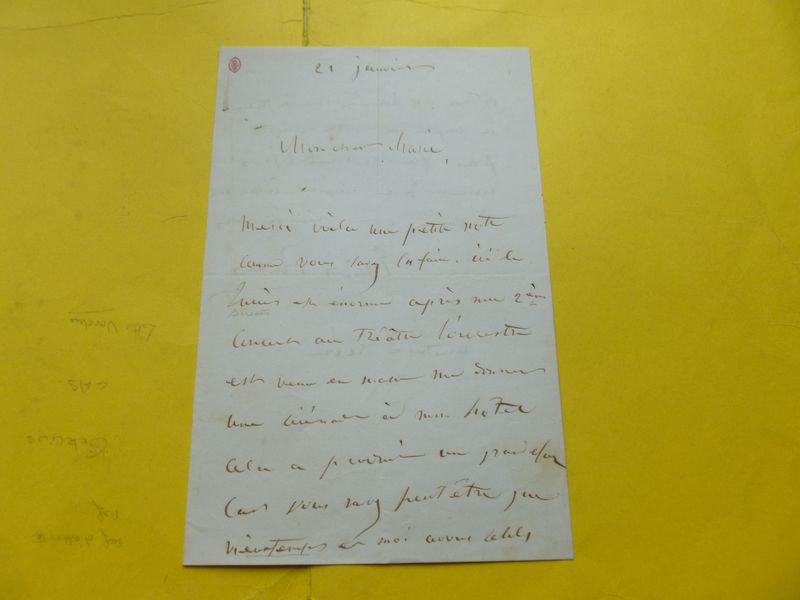 21 janvier
Mon cher Marie
Merci voilà une petite note
comme vous savez les faire. ici le
succès est énorme après mon 2ème
concert au Théâtre l'orchestre
est venu en masse me donner
une sérénade à mon hotel
cela a produit un grand effet
car vous savez peut être que
Vieuxtemps et moi avons